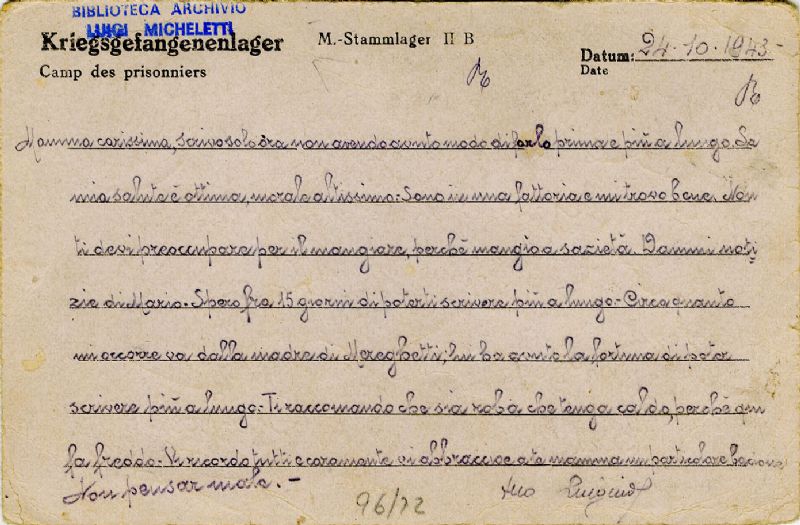 BIBLIOTECA ARCHIVIO
LUIGI MICHELETTI
Kriegsgefangenenlager M.-Stammlager II B Datum: 24-10-1943-
Camp des prisonniers Date
Mamma carissima, scrivo solo ora non avendo avuto modo di farlo prima e più a lungo. La
mia salute è ottima, morale altissimo. Sono in una fattoria e mi trovo bene. Non
ti devi preoccupare per il mangiare, perchè mangio a sazietà. Dammi noti-
zie di Mario. Spero fra 15 giorni di poterti scrivere più a lungo. Circa quanto
mi occorre va dalla madre di Mereghetti, lui ha avuto la fortuna di poter
scrivere più a lungo. Ti raccomando che sia roba che tenga caldo, perchè qui
fa freddo. Vi ricordo tutti e caramente vi abbraccio e a te mamma un particolare
Non pensar male. -
96/72